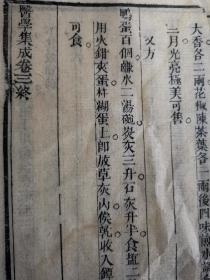 大香各二兩花椒陳茶葉各一兩後四味儎水
二月光亮極美可售
又方
鴨蛋百個鹹水二湯碗炭灰三升石灰升半食鹽二
用火鉗夾蛋柈糊蛋上卽放草灰內候乾收入罈
可食
醫學集成卷三終